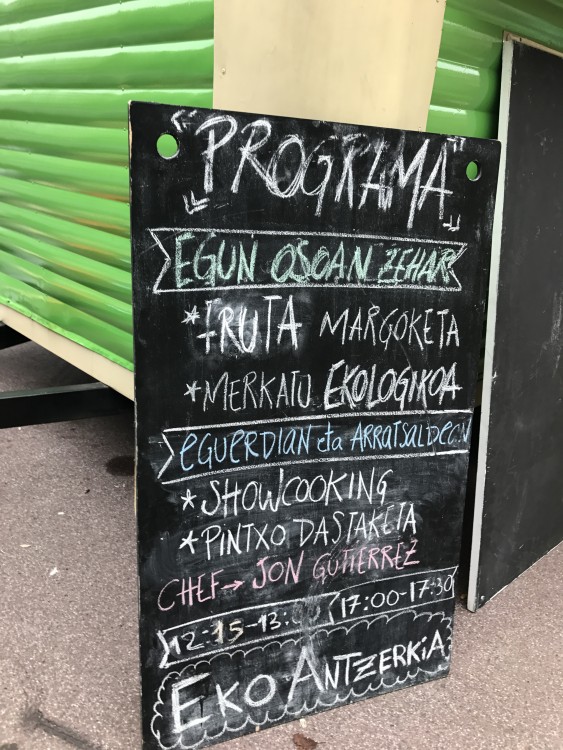 "PROGRAMA"
EGUN OSOAN ZEHAR
*FRUTA MARGOKETA
*MERKATU EKOLOGIKOA
EGUERDIAN eta ARRATSALDEAN
*SHOWCOOKING
*PINTXO DASTAKETA
CHEF→ JON GUTIERREZ
12:15-13: 17:00-17:30
EKO ANTZERKIA